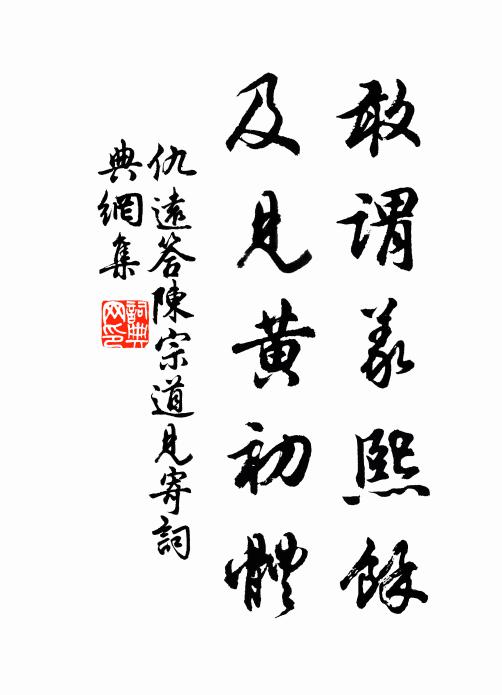 敢謂羲熙餘
及見黃初體
仇遠答陳宗道見寄詞
典網集
詞典網印